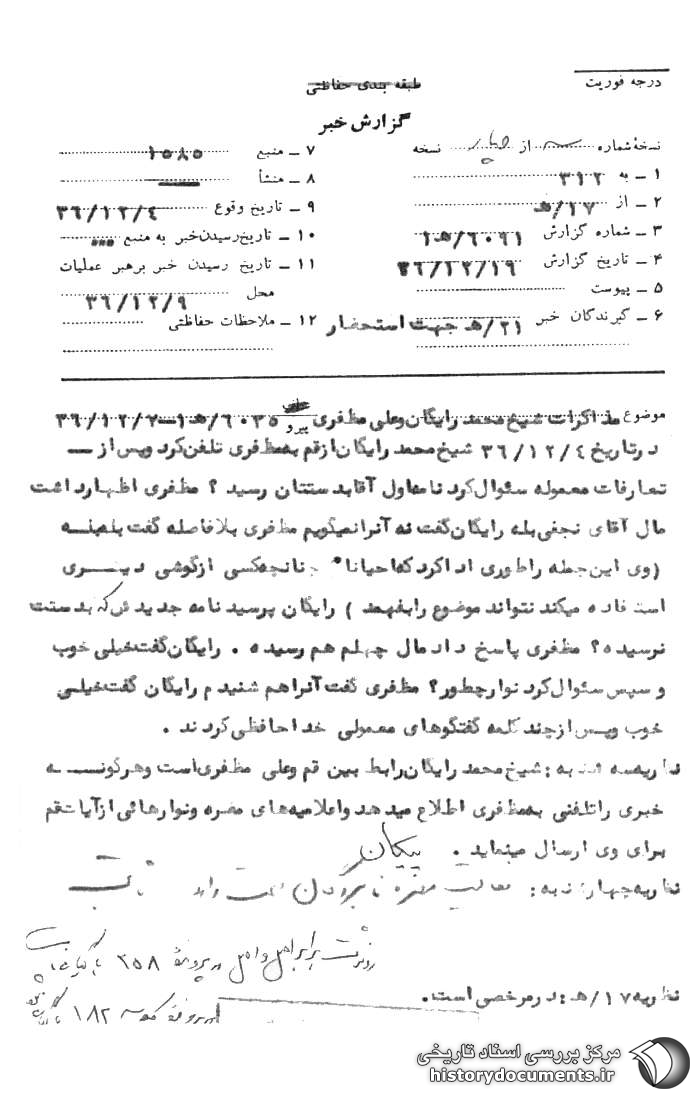 درجه فوریت
طبقه بندی حفاظتی
گزارش خبر
نسخهٔ شماره از نسخه
۱ ـ به ۳۱۲
۲ ـ از ۱۷/هـ
۳ ـ شماره گزارش ۱ه/۶۰۹۱
۴ ـ تاریخ گزارش ۳۶/۱۲/۱۹
۵ ـ پیوست
۶ ـ گیرندگان خبر ۲۱/هـ جهت استحضار
۷ ـ منبع ۱۵۸۵
۸ ـ منشأ
۹ ـ تاریخ وقوع ۳۶/۱۲/۴
۱۰ ـ تاریخ رسیدن خبر به منبع
۱۱ ـ تاریخ رسیدن خبر برهبر عملیات
محل ۳۶/۱۲/۹
۱۲ ـ ملاحظات حفاظتی
موضوع مذاکرات شیخ محمد رایگان وعلی مظفری پیرو ۱ه/۶۰۳۵ ـ ۳۶/۱۲/۲
درتاریخ ۳۶/۱۲/۴ شیخ محمد رایگان ازقم به مظفری تلفن کرد وپس از ـ
تعارفات معموله سئوال کرد نامه اول آقا بدستتان رسید ؟ مظفری اظهارداشت
مال آقای نجفی بله رایگان گفت نه آنرا نمیگویم مظفری بلافاصله گفت بله بله
(وی این جمله راطوری ادا کرد که احیانا چنانچه کسی ازگوشی دیگری
استفاده میکند نتواند موضوع رابفهمد ) رایگان پرسید نامه جدیدش که بدستت
نرسیده؟ مظفری پاسخ داد مال چهلم هم رسیده . رایگان گفت خیلی خوب
و سپس سئوال کرد نوارچطور؟ مظفری گفت آنراهم شنیدم رایگان گفت خیلی
خوب وپس ازچند کلمه گفتگوهای معمولی خداحافظی کردند .
نظریه سه شنبه : شیخ محمد رایگان رابط بین قم وعلی مظفری است وهرگونه
خبری راتلفنی به مظفری اطلاع میدهد واعلامیه های مضره ونوارهائی ازآیات قم
برای وی ارسال مینماید . پیکان
نظریه چهارشنبه :
رونوشت برابر اصل و اصل در پرونده ۲۵۸
در پرونده ۱۸۲
نظریه ۱۷/هـ : درمرخصی است .
مرکز بررسی اسناد تاریخی
historydocuments.ir